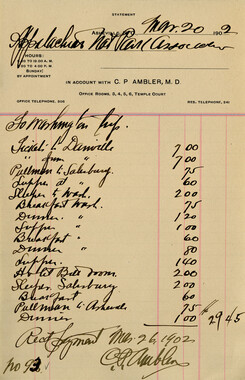 STATEMENT
Mar. 20 1902
Appalachian Nat Park Association
HOURS:
SUNDAY:
BY APPOINTMENT
IN ACCOUNT WITH C. P. AMBLER, M. D
OFFICE ROOMS, 3, 4, 5, 6, TEMPLE COURT
OFFICE TELEPHONE, RES. TELEPHONE,
To Washington trip.
Ticket to Danville 7 00
" from " 7 00
Pullman to Salisbury. 75
Supper at " 60
Sleeper to Wash. 2 00
Breakfast Wash. 75
Dinner " 1 20
Supper " 1 00
Breakfast " 60
Dinner " 80
Supper. 1 40
Hotel Bill room. 2 00
Sleeper Salisbury 2 00
Breakfast 60
Pullman to Asheville 75
Dinner 1 00 29 45
Recd payment Mar. 26, 1902.
C. P. Ambler
no 93.